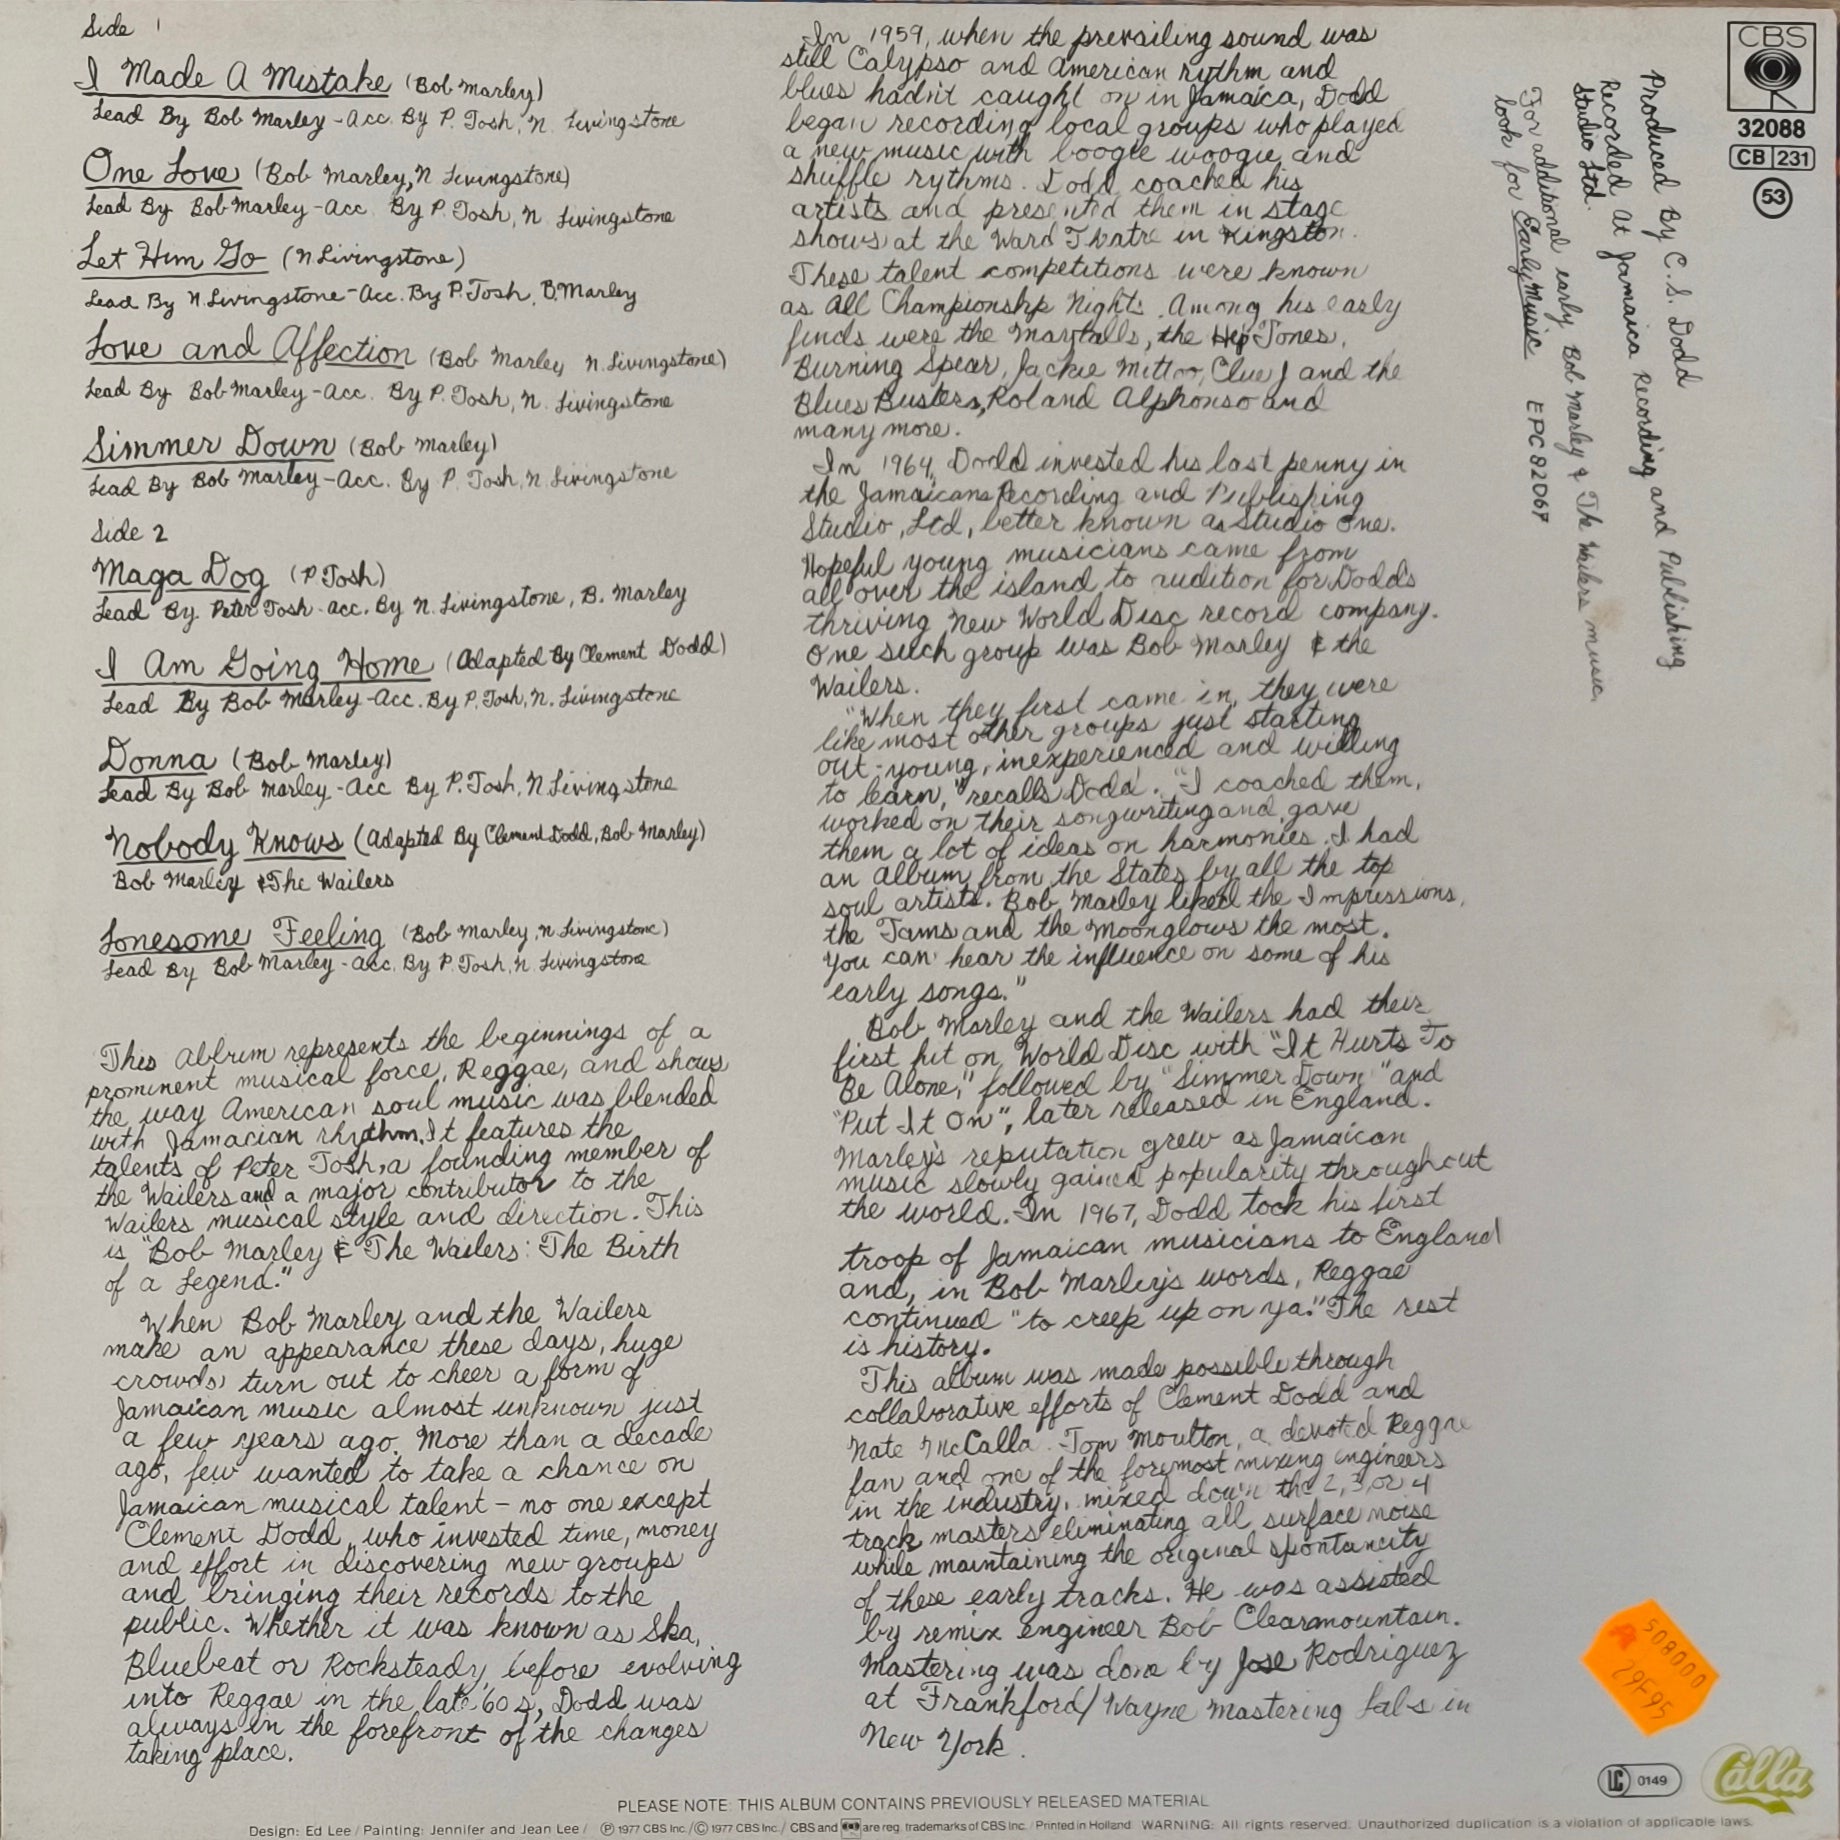 Side 1
I Made A Mistake (Bob Marley)
Lead By Bob Marley - Acc. By P. Tosh, N. Livingstone
One Love (Bob Marley, N Livingstone)
Lead By Bob Marley - Acc. By P. Tosh, N. Livingstone
Let Him Go (N Livingstone)
Lead By N Livingstone - Acc. By P. Tosh, B. Marley
Love and Affection (Bob Marley N. Livingstone)
Lead By Bob Marley - Acc. By P. Tosh, N. Livingstone
Simmer Down (Bob Marley)
Lead By Bob Marley - Acc. By P. Tosh, N. Livingstone
Side 2
Maga Dog (P Tosh)
Lead By Peter Tosh - acc. By N. Livingstone, B. Marley
I Am Going Home (Adapted By Clement Dodd)
Lead By Bob Marley - Acc. By P. Tosh, N. Livingstone
Donna (Bob Marley)
Lead By Bob Marley - Acc By P. Tosh, N Livingstone
Nobody Knows (Adapted By Clement Dodd, Bob Marley)
Bob Marley & The Wailers
Lonesome Feeling (Bob Marley, N Livingstone)
Lead By Bob Marley - Acc. By P. Tosh, N. Livingstone
This album represents the beginnings of a
prominent musical force, Reggae, and shows
the way American soul music was blended
with Jamacian rhythm. It features the
talents of Peter Tosh, a founding member of
the Wailers and a major contributor to the
Wailers musical style and direction. This
is "Bob Marley & The Wailers: The Birth
of a Legend."
When Bob Marley and the Wailers
make an appearance these days, huge
crowds turn out to cheer a form of
Jamaican music almost unknown just
a few years ago. More than a decade
ago, few wanted to take a chance on
Jamaican musical talent - no one except
Clement Dodd, who invested time, money
and effort in discovering new groups
and bringing their records to the
public. Whether it was known as Ska,
Bluebeat or Rocksteady, before evolving
into Reggae in the late '60s, Dodd was
always in the forefront of the changes
taking place.
In 1959, when the prevailing sound was
still Calypso and American rythm and
blues hadn't caught on in Jamaica, Dodd
began recording local groups who played
a new music with boogie woogie and
shuffle rythms. Dodd coached his
artists and presented them in stage
shows at the Ward Theatre in Kingston.
These talent competitions were known
as All Championship Nights. Among his early
finds were the Maytalls, the Hep Tones,
Burning Spear, Jackie Mittoo, Clue J and the
Blues Busters, Roland Alphonso and
many more.
In 1964, Dodd invested his last penny in
the Jamaicans Recording and Publishing
Studio, Ltd, better known as Studio One.
Hopeful young musicians came from
all over the island to audition for Dodd's
thriving New World Disc record company.
One such group was Bob Marley & the
Wailers.
"When they first came in, they were
like most other groups just starting
out - young, inexperienced and willing
to learn," recalls Dodd. "I coached them,
worked on their songwriting and gave
them a lot of ideas on harmonies. I had
an album from the States by all the top
soul artists. Bob Marley liked the Impressions,
the Tams and the Moonglows the most.
You can hear the influence on some of his
early songs."
Bob Marley and the Wailers had their
first hit on World Disc with "It Hurts To
Be Alone," followed by "Simmer Down" and
"Put It On", later released in England.
Marley's reputation grew as Jamaican
music slowly gained popularity throughout
the world. In 1967, Dodd took his first
troop of Jamaican musicians to England
and, in Bob Marley's words, Reggae
continued "to creep up on ya." The rest
is history.
This album was made possible through
collaborative efforts of Clement Dodd and
Nate McCalla. Tom Moulton, a devoted Reggae
fan and one of the foremost mixing engineers
in the industry, mixed down the 2, 3, or 4
track masters eliminating all surface noise
while maintaining the original spontaneity
of these early tracks. He was assisted
by remix engineer Bob Clearmountain.
Mastering was done by Jose Rodriguez
at Frankford/Wayne Mastering Labs in
New York.
Produced By C.S. Dodd
Recorded At Jamaica Recording and Publishing
Studio Ltd.
For additional early Bob Marley & The Wailers music,
look for Early Music EPC 82067
CBS
32088
CB 231
53
508000
29F95
LC 0149
Calla
PLEASE NOTE: THIS ALBUM CONTAINS PREVIOUSLY RELEASED MATERIAL
Design: Ed Lee / Painting: Jennifer and Jean Lee / ℗ 1977 CBS Inc. / © 1977 CBS Inc. / CBS and are reg. trademarks of CBS Inc. / Printed in Holland WARNING: All rights reserved. Unauthorized duplication is a violation of applicable laws.